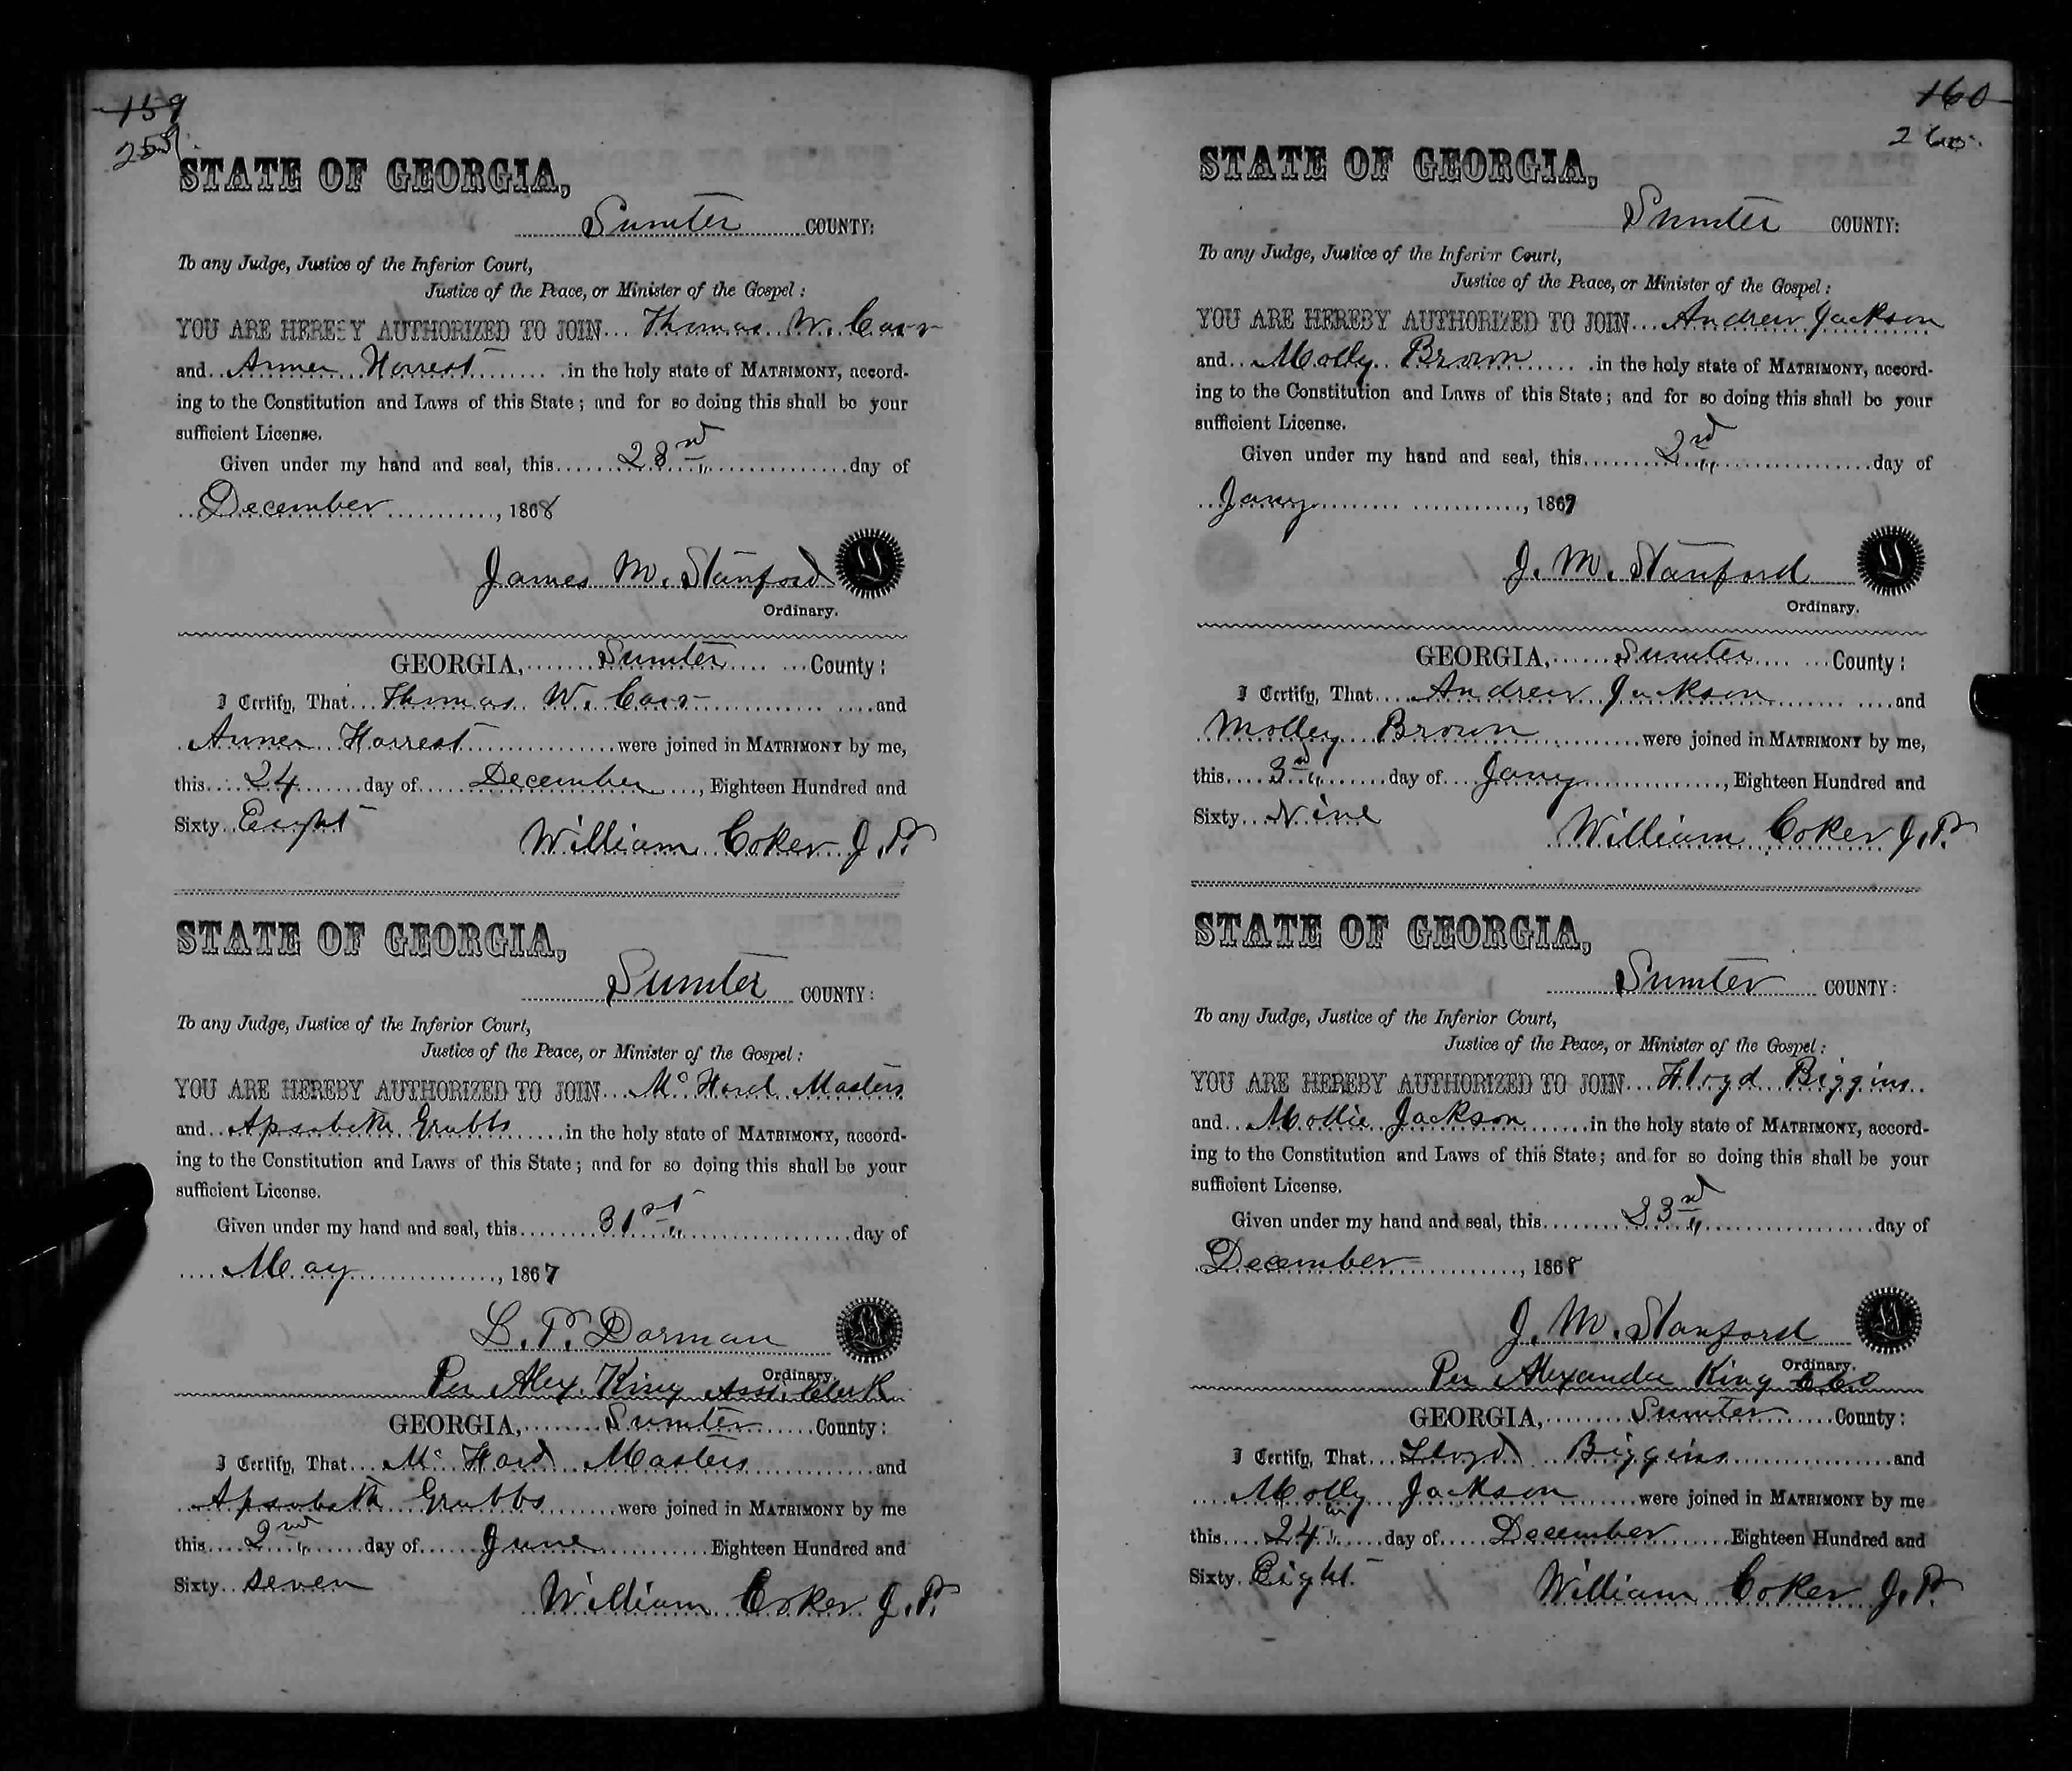 159
259.
STATE OF GEORGIA,
Sumter COUNTY:
To any Judge, Justice of the Inferior Court,
Justice of the Peace, or Minister of the Gospel:
YOU ARE HEREBY AUTHORIZED TO JOIN Thomas W. Carr
and Anner Horrest in the holy state of MATRIMONY, accord-
ing to the Constitution and Laws of this State; and for so doing this shall be your
sufficient License.
Given under my hand and seal, this 23rd day of
December, 1868
James M. Stanford
Ordinary.
GEORGIA, Sumter County:
I Certify, That Thomas W. Carr and
Anner Horrest were joined in MATRIMONY by me,
this 24 day of December, Eighteen Hundred and
Sixty Eight William Coker J.P.
STATE OF GEORGIA,
Sumter COUNTY:
To any Judge, Justice of the Inferior Court,
Justice of the Peace, or Minister of the Gospel:
YOU ARE HEREBY AUTHORIZED TO JOIN Mc Hord Masters
and Apsabeth Grubbs in the holy state of MATRIMONY, accord-
ing to the Constitution and Laws of this State; and for so doing this shall be your
sufficient License.
Given under my hand and seal, this 31st day of
May, 1867
L. P. Dorman
Ordinary.
Per Alex. King Asst. Clerk
GEORGIA, Sumter County:
I Certify, That Mc Hord Masters and
Apsabeth Grubbs were joined in MATRIMONY by me
this 2nd day of June Eighteen Hundred and
Sixty seven William Coker J.P.
160
260.
STATE OF GEORGIA,
Sumter COUNTY:
To any Judge, Justice of the Inferior Court,
Justice of the Peace, or Minister of the Gospel:
YOU ARE HEREBY AUTHORIZED TO JOIN Andrew Jackson
and Molly Brown in the holy state of MATRIMONY, accord-
ing to the Constitution and Laws of this State; and for so doing this shall be your
sufficient License.
Given under my hand and seal, this 2nd day of
Jany, 1869
J. M. Stanford
Ordinary.
GEORGIA, Sumter County:
I Certify, That Andrew Jackson and
Molley Brown were joined in MATRIMONY by me,
this 3rd day of Jany, Eighteen Hundred and
Sixty Nine William Coker J.P.
STATE OF GEORGIA,
Sumter COUNTY:
To any Judge, Justice of the Inferior Court,
Justice of the Peace, or Minister of the Gospel:
YOU ARE HEREBY AUTHORIZED TO JOIN Floyd Biggins
and Mollie Jackson in the holy state of MATRIMONY, accord-
ing to the Constitution and Laws of this State; and for so doing this shall be your
sufficient License.
Given under my hand and seal, this 23rd day of
December, 1868
J. M. Stanford
Ordinary.
Per Alexander King
GEORGIA, Sumter County:
I Certify, That Lloyd Biggins and
Molly Jackson were joined in MATRIMONY by me
this 24th day of December Eighteen Hundred and
Sixty Eight. William Coker J.P.